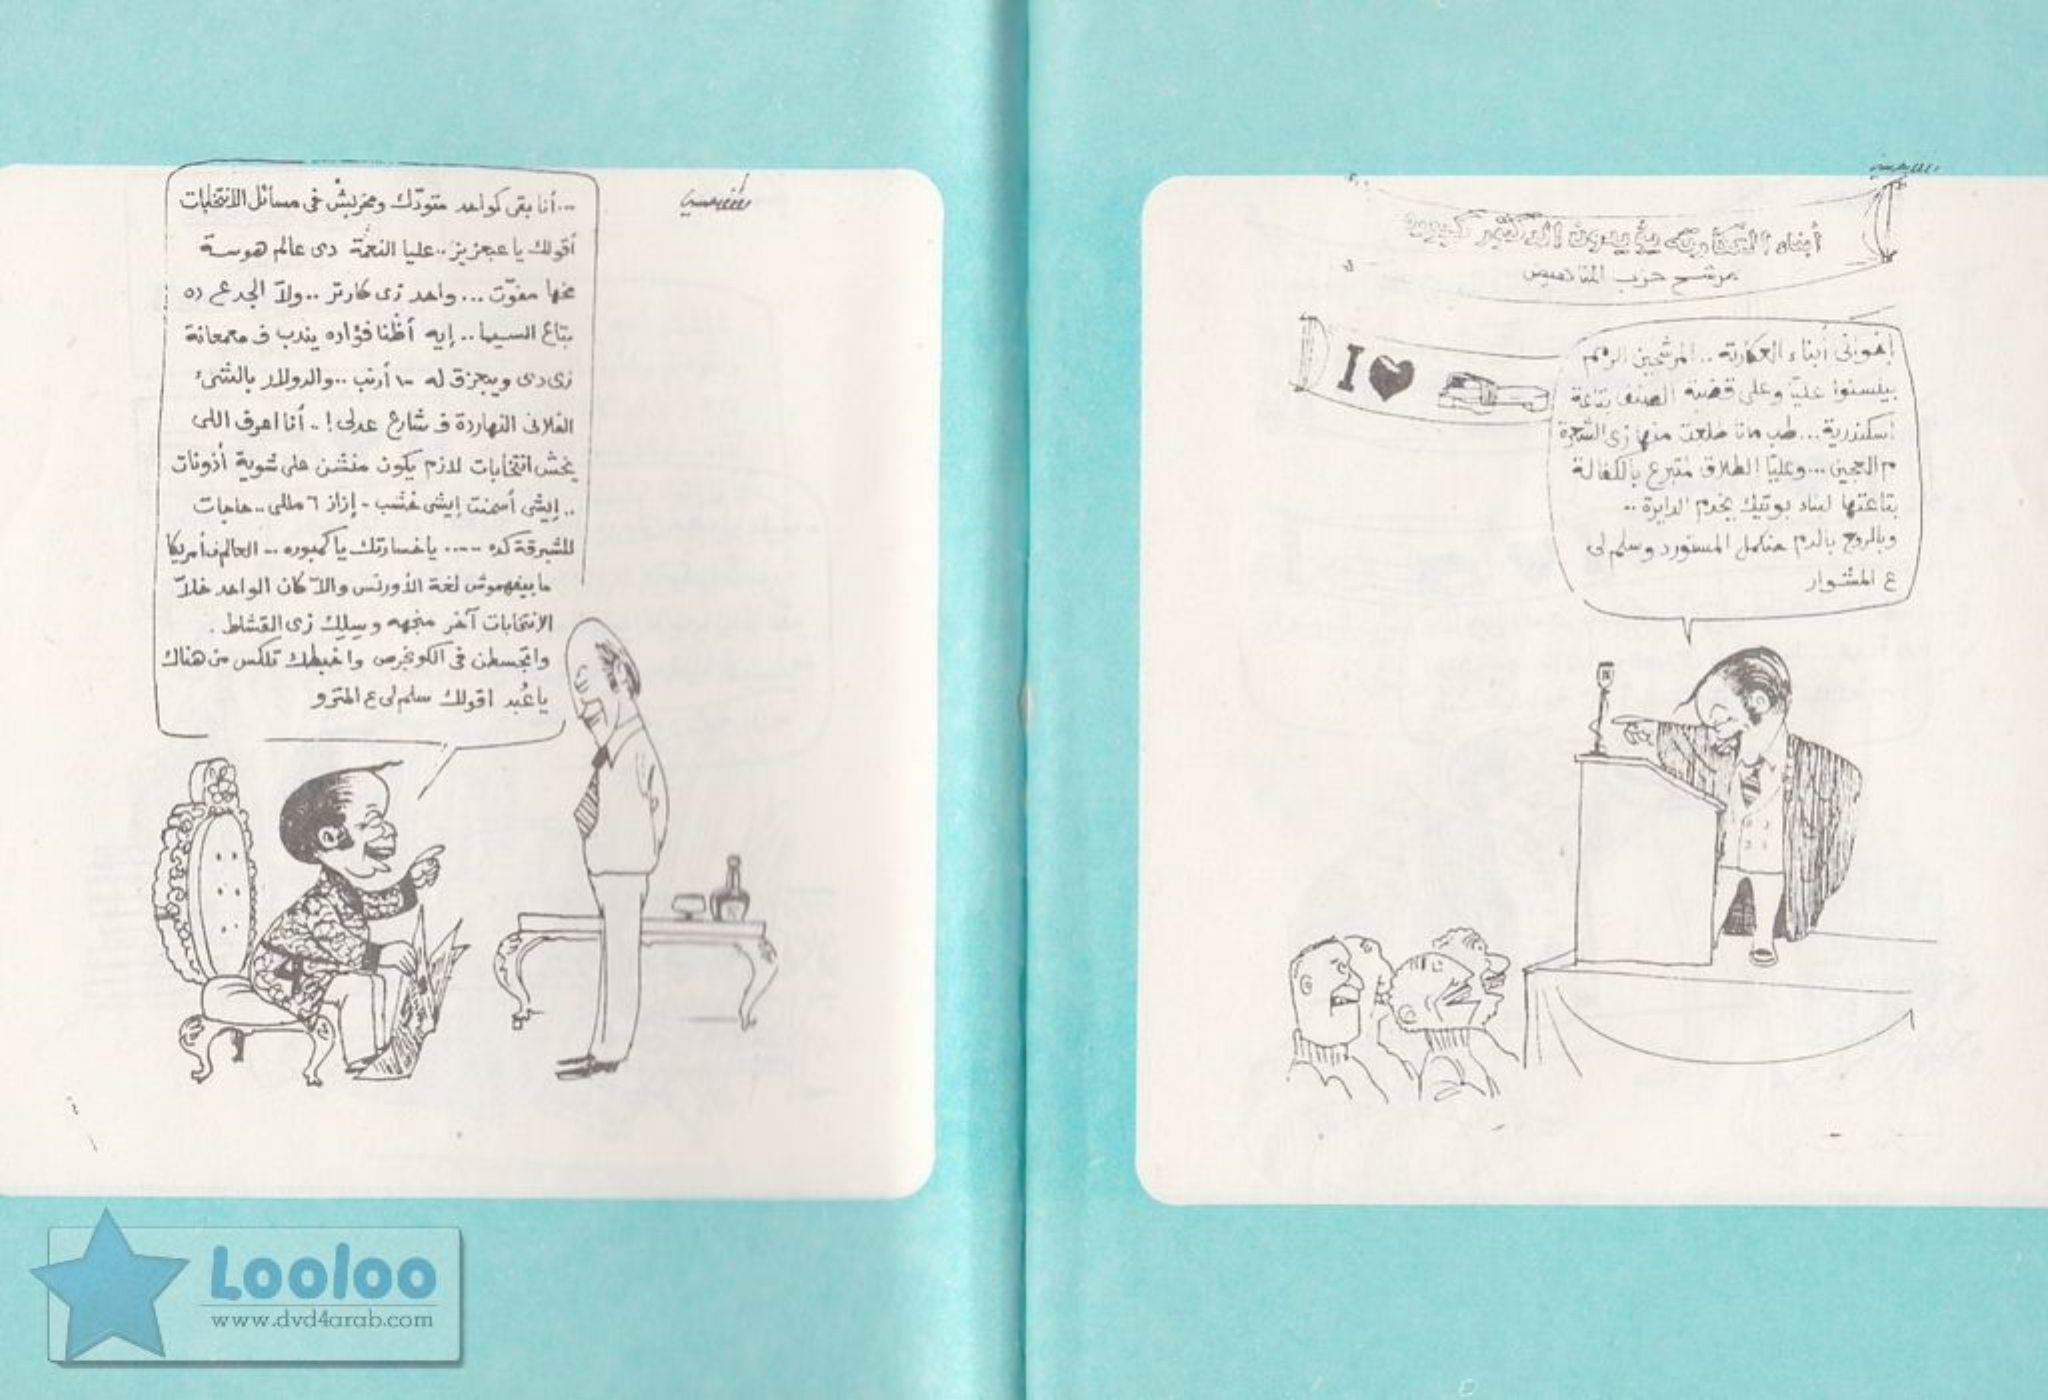 أبناء العكارته يؤيدون الدكتور كمبوره
مرشح حزب المتاهيص
I
إخوانى أبناء العكارته .. المرشحين الرمم
بيلسنوا عليّا وعلى قضية الصنف بتاعة
اسكندرية... طب مانا طلعت منها زى الشعرة
م العجين ... وعليّا الطلاق لمتبرع بالكفالة
بتاعتها لبناء بوتيك يخدم الدايرة ..
وبالروح بالدم هنكمل المستورد وسلم لى
ع المشوار
... أنا بقى كواحد متودّك ومخربش فى مسائل الانتخابات
أقولك يا عبعزيز .. عليا النعمة دى عالم هوسة
مخها مفوّت ... واحد زى كارتر .. ولاّ الجدع ده
بتاع السيما .. إيه أظنا فؤاده يندب ف معمعانة
زى دى ويبعزق له ١٠٠ أرنب .. والدولار بالشئ
الفلانى النهاردة ف شارع عدلى ! .. أنا اعرف اللى
يخش انتخابات لازم يكون منشن على شوية أذونات
.. إيشى أسمنت إيشى خشب - إزاز ٦ مللى .. حاجات
للشبرقة كده ..... يا خسارتك يا كمبوره .. العالم ف أمريكا
ما بيفهموش لغة الأورنس والاّ كان الواحد خلاّ
الانتخابات آخر منجهه وسِلِك زى القشاط .
واتجسطن فى الكونجرص واخبطك تلكس من هناك
يا عُبد اقولك سلم لى ع المترو
Looloo
www.dvd4arab.com